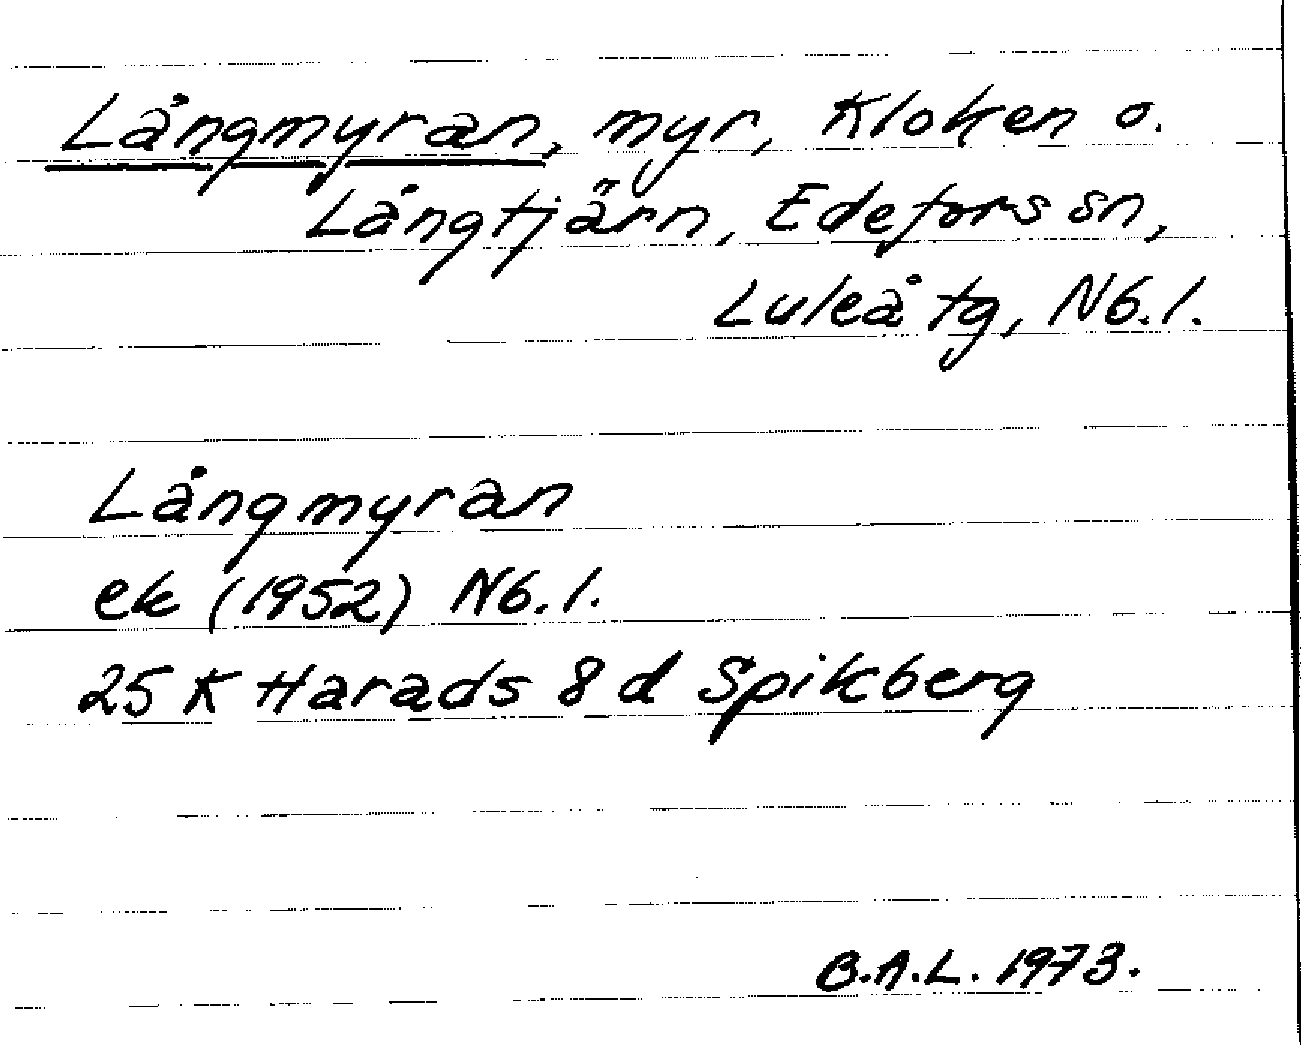 Långmyran, myr, Kloken o.
Långtjärn, Edefors sn,
Luleå tg, Nb. l.
Långmyran
ek (1952) Nb. l.
25 K Harads 8 d Spikberg
B.A.L. 1973.